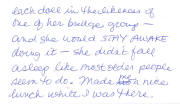 each doll in the likeness of
one of her bridge group —
and she would STAY AWAKE
doing it — she didn't fall
asleep like most older people
seem to do. Made me a nice
lunch while I was there.